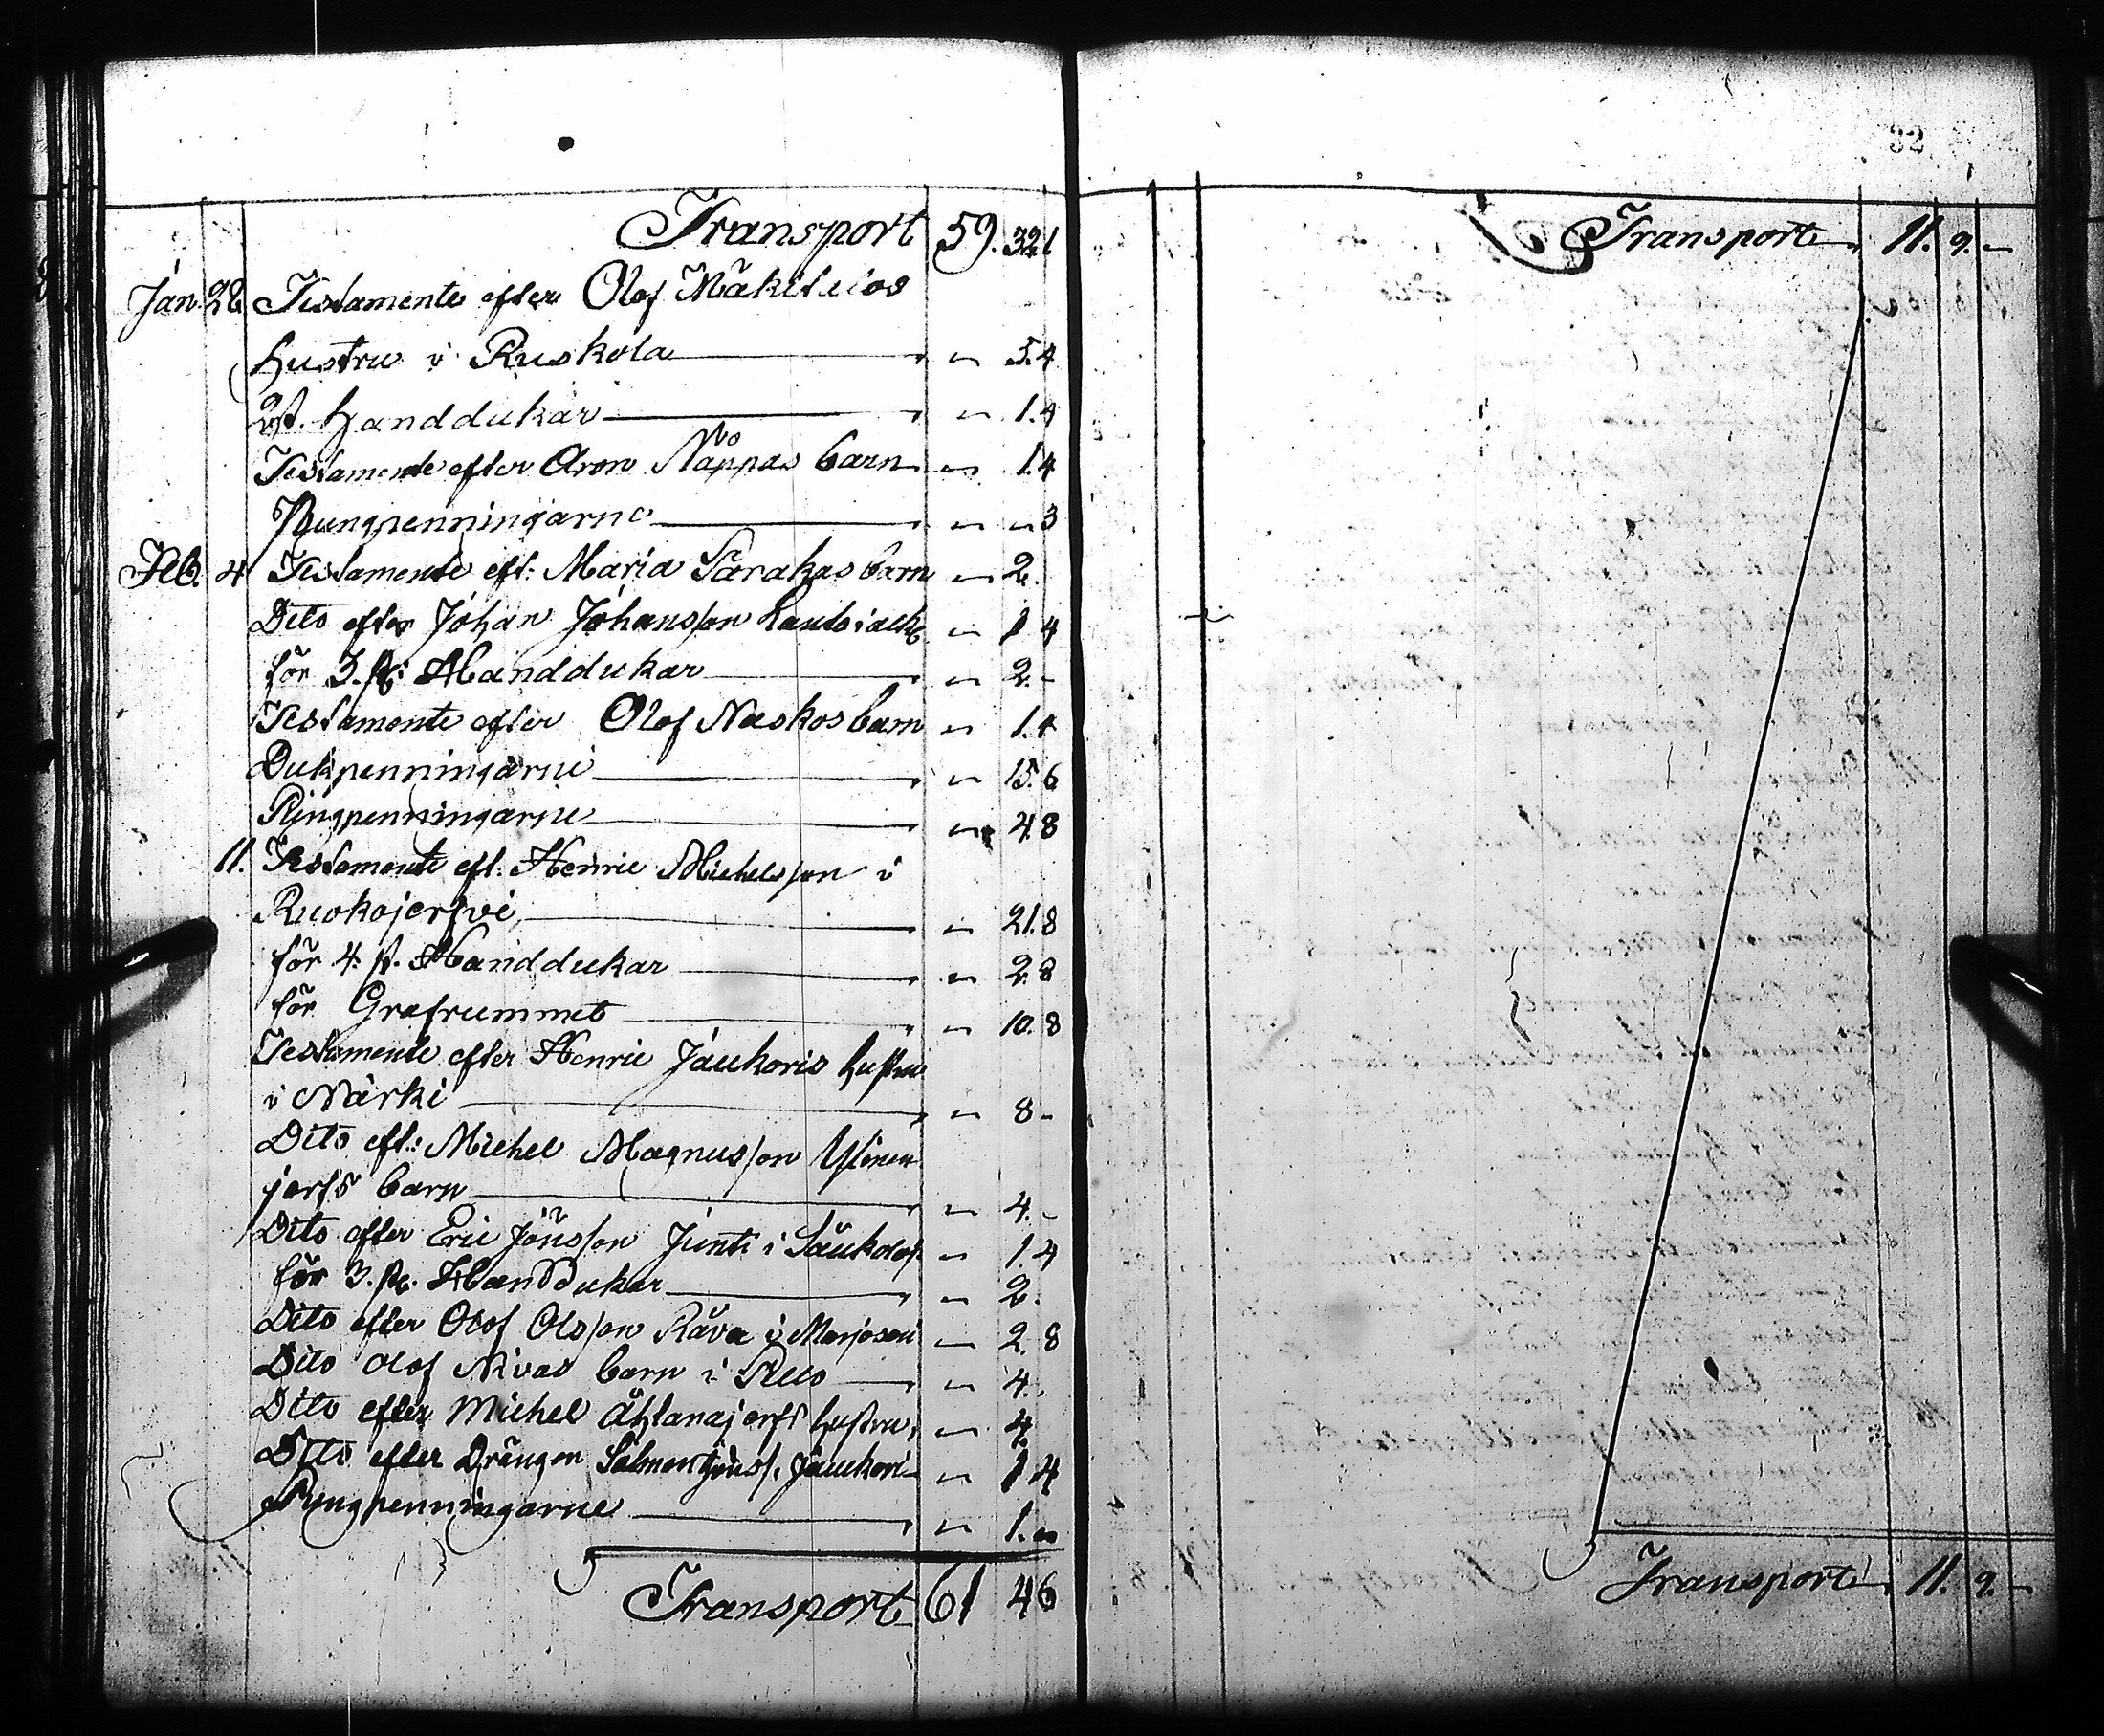 Transport 59. 32.1
Jan. 28 Testamente efter Olof Mäkitalos
hustru i Ruskola " 5.4
2 st. handdukar " 1.4
Testamente efter Aron Nappas barn " 1.4
Pungpenningarna " " 3
Feb. 4 Testamente eft: Maria Sarakas barn " 2.
Dito efter Johan Johansson " 1 4
för 3. st: Handdukar " 2.-
Testamente efter Olof Naskos barn " 1.4
Dukpenningarne " 15.6
Ringpenningarne " 4.8
11. Testamente eft: Henric Michelsson i
Ruokojerfvi " 21.8
för 4. st. Handdukar " 2.8
för Grafrummet " 10.8
Testamente efter Henric Jaukoris hustru
i Närki " 8 -
Dito eft: Michel Magnusson Ylinen
jerfs barn " 4. -
Dito efter Eric Jönsson Junti i " 1.4
för 3. st. Handdukar " 2.
Dito efter Olof Olsson Räva i Marjosari " 2. 8
Dito Olof Nivas barn i Ruo " 4.
Dito efter Michel hustru " 4.
Dito efter Drängen Salmon Jönss. Jaukori " 1 4
Pungpenningarne " 1. "
Transport 61 46
32
Transport 11. 9. -
Transport 11. 9. -